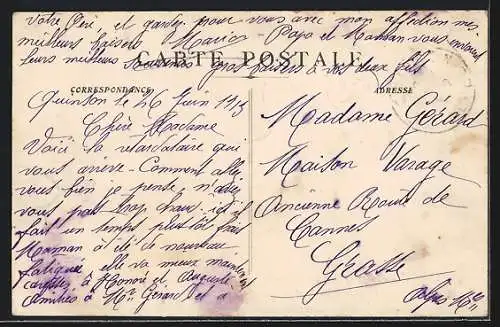 votre Géré, et gardez pour vous avec mon affection mes
meilleurs baisers Marier - Papa et Maman vous envoient
leurs meilleurs souvenirs gros baisers à vos deux fils
CARTE POSTALE
CORRESPONDANCE
Quinson le 26 Juin 1915
Chère Madame
Voici la retardataire qui
vous arrive - Comment allez
vous bien je pense, n'avez
vous pas trop chaud ici il
fait un temps plutôt frais
Maman a été de nouveau
fatiguée, elle va mieux maintenant
caresses à Honoré et Auguste
Amitiés à Mr Gérard et à
ADRESSE
Madame Gérard
Maison Varage
Ancienne Route de
Cannes
Grasse
Alpes Mmes